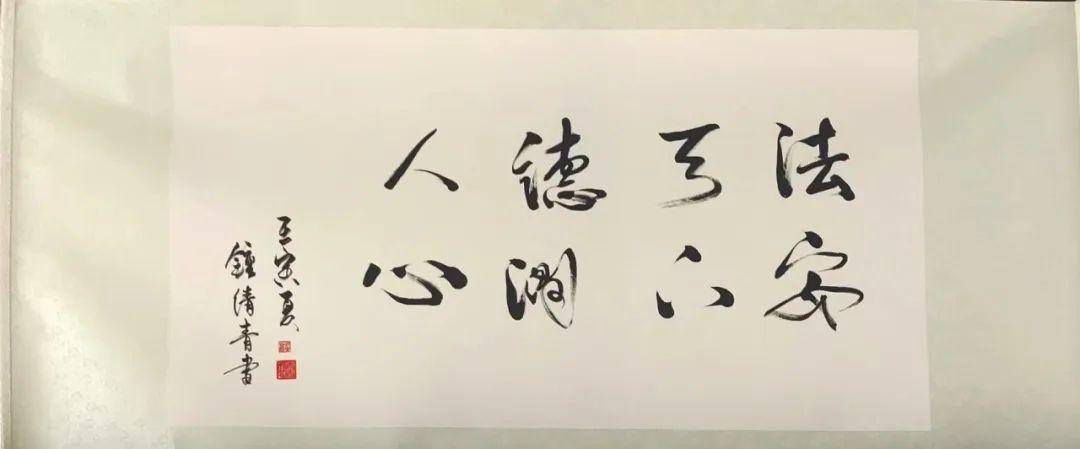 法安
天下
德润
人心
壬寅夏
钟清青书